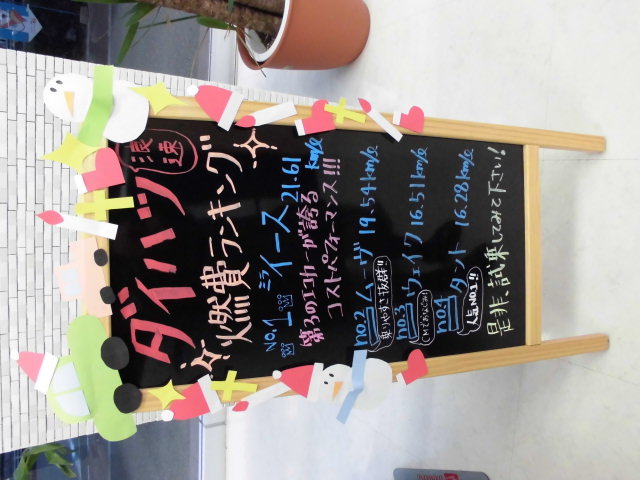 ダイハツ
浪速
燃費ランキング
No.1 ミライース 21.61 km/ℓ
第3のエコカーが誇る
コストパフォーマンス!!!
no.2 ムーヴ 19.54 km/ℓ
乗りやすさ抜群!!
no.3 ウェイク 16.51 km/ℓ
CMでおなじみ!
no.4 タント 16.28 km/ℓ
人気No.1!!
是非、試乗してみて下さい!